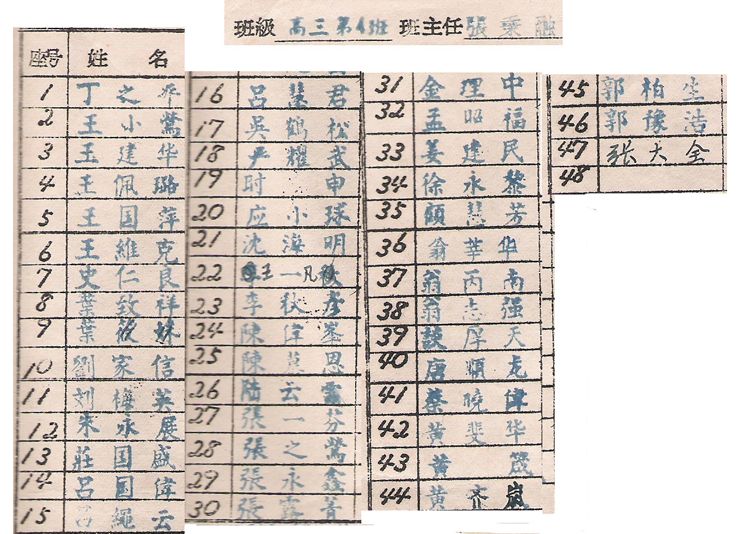 班級 高三第4班 班主任 張乘融
座号 姓 名
1 丁之
2 王小鶯
3 王建华
4 王佩璐
5 王国萍
6 王維克
7 史仁良
8 葉致祥
9 葉筱妹
10 劉家信
11 刘梅英
12 朱永展
13 莊国盛
14 呂国偉
15 呂繩云
16 呂慧君
17 吳鶴松
18 严耀武
19 时申
20 应小球
21 沈海明
22 王一凡
23 李秋彦
24 陳偉
25 陳恩
26 陆云露
27 張一芬
28 張之鶯
29 張永鑫
30 張露菁
31 金理中
32 孟昭福
33 姜建民
34 徐永黎
35 顧慧芳
36 翁華华
37 翁丙南
38 翁志强
39 談厚天
40 唐順龙
41 蔡曉偉
42 黄斐华
43 黄箴
44 黄齐嵐
45 郭柏生
46 郭豫浩
47 张大全
48